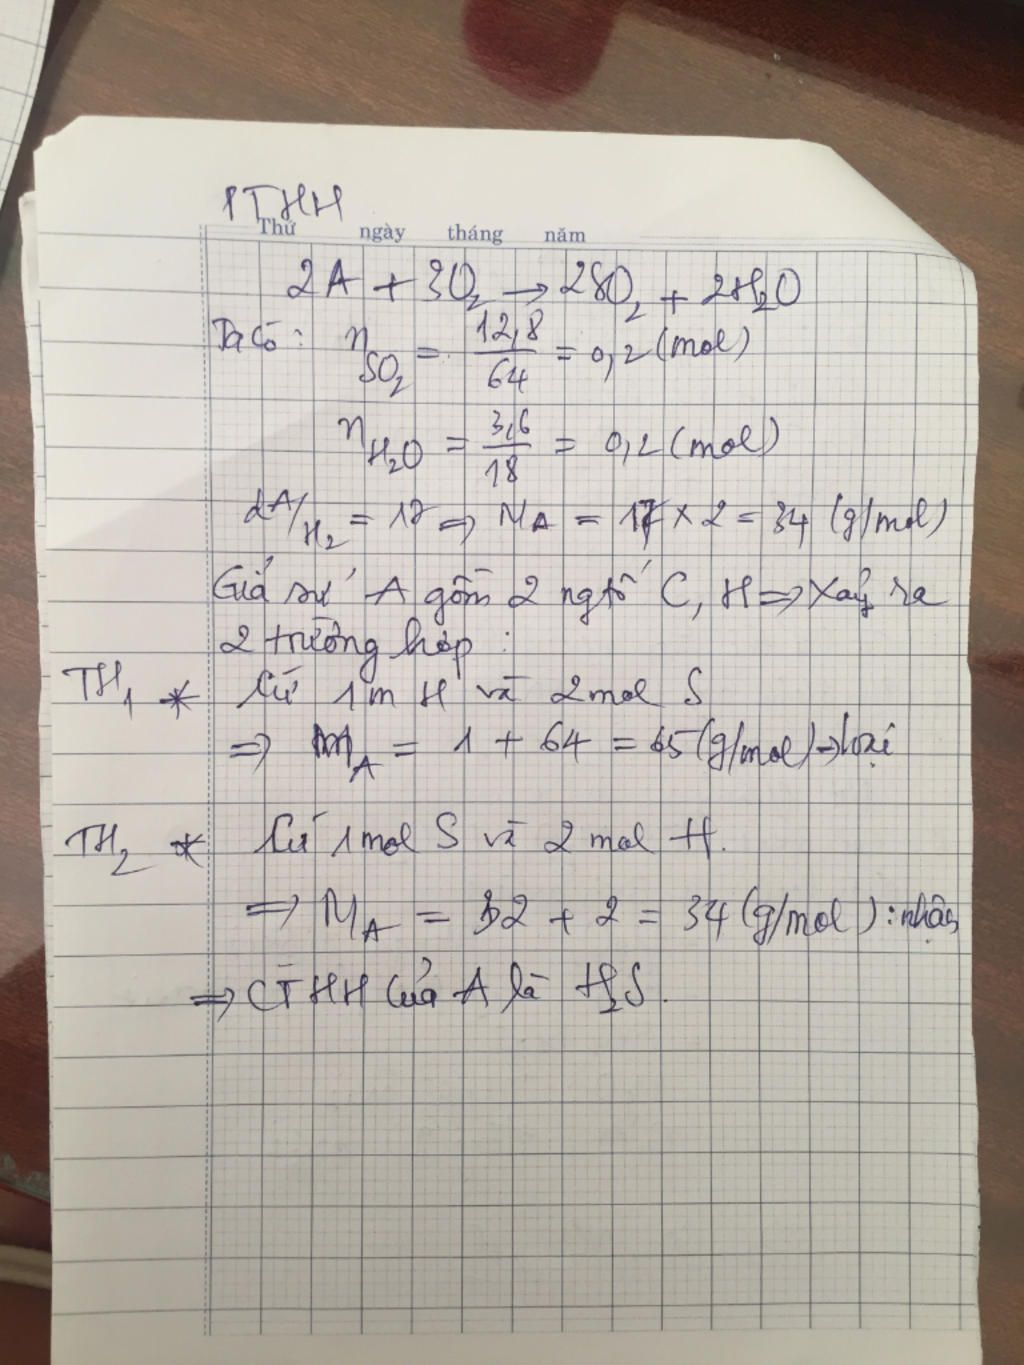 PTHH
Thứ ngày tháng năm
2A + 3O2 → 2SO2 + 2H2O
Ta có: nSO2 = 12,8/64 = 0,2 (mol)
nH2O = 3,6/18 = 0,2 (mol)
dA/H2 = 17 => MA = 17 x 2 = 34 (g/mol)
Giả sử A gồm 2 ngtố C, H => Xảy ra
2 trường hợp :
TH1 * Cứ 1m H và 2 mol S
=> MA = 1 + 64 = 65 (g/mol) → loại
TH2 * Cứ 1 mol S và 2 mol H.
=> MA = 32 + 2 = 34 (g/mol) : nhận
=> CTHH của A là H2S.